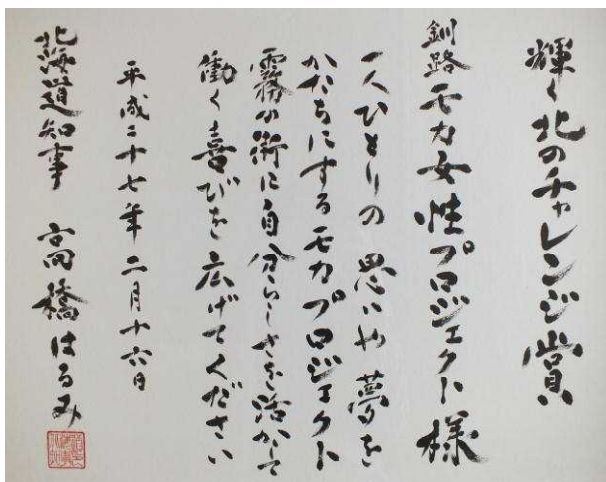 輝く北のチャレンジ賞
釧路モカ女性プロジェクト様
一人ひとりの思いや夢を
かたちにするモカプロジェクト
霧の街に自分らしさを活かして
働く喜びを広げてください
平成二十七年二月十六日
北海道知事 高橋はるみ